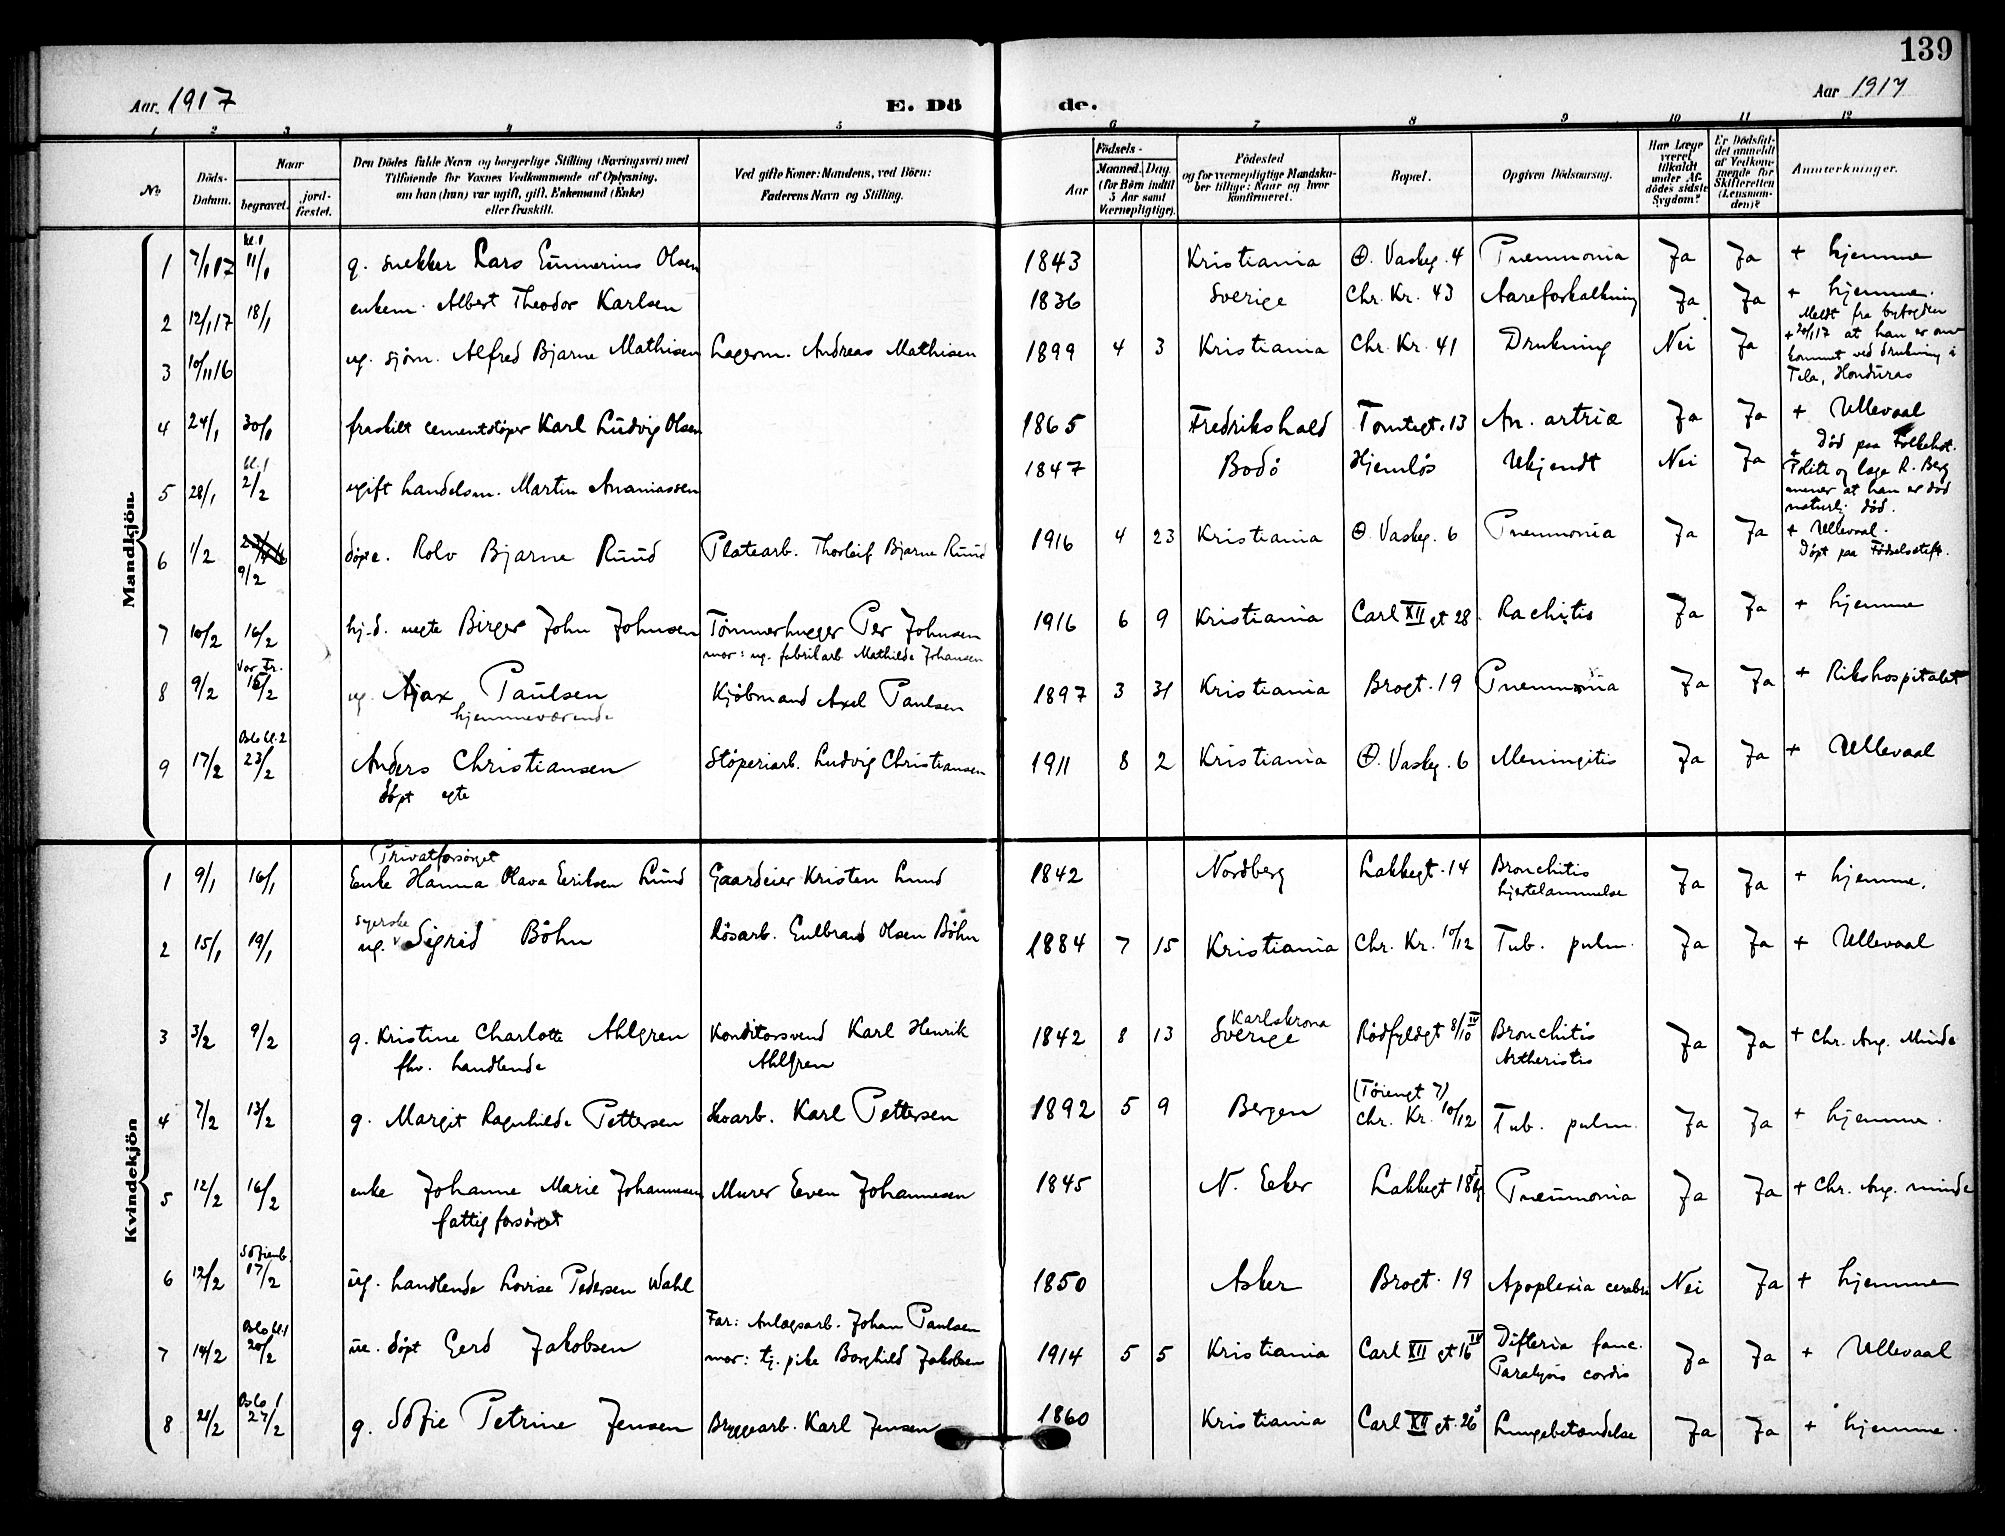 139
Aar. 1917 E. Dö de. Aar 1917
1 2 3 4 5 6 7 8 9 10 11 12
No. Döds-Datum. Naar begravet. jordfæstet. Den Dödes fulde Navn og borgerlige Stilling (Næringsvei) med Tilföiende for Voxnes Vedkommende af Oplysning, om han (hun) var ugift, gift, Enkemand (Enke) eller fraskilt. Ved gifte Koner: Mandens, ved Börn: Faderens Navn og Stilling. Födsels- Aar Maaned. Dag (for Børn indtil 5 Aar samt Værnepligtige). Födested og for værnepligtige Mandskaber tillige: Naar og hvor konfirmeret. Bopæl. Opgiven Dödsaarsag. Har Læge været tilkaldt under Afdödes sidste Sygdom? Er Dödsfaldet anmeldt af Vedkommende for Skifteretten (Lensmanden)? Anmærkninger.
Mandkjön
1 7/1 17 kl. 1 11/1 g. snekker Lars Gunnerius Olsen 1843 Kristiania Ø. Vaskeg. 4 Pneumonia Ja Ja + hjemme
2 12/1 17 18/1 enkem. Albert Theodor Karlsen 1836 Sverige Chr. Kr. 43 Aareforkalkning Ja Ja + hjemme.
3 10/11 16 ug. sjøm. Alfred Bjarne Mathisen Lagerm. Andreas Mathisen 1899 4 3 Kristiania Chr. Kr. 41 Drukning Nei Ja Meldt fra byfogden
+ 20/1 17 at han er om
kommet ved drukning i
Tela, Honduras
4 24/1 30/1 fraskilt cementstøper Karl Ludvig Olsen 1865 Fredrikshald Tomtegt. 13 An. artriæ Ja Ja + Ullevaal
5 28/1 kl. 1 2/2 ugift handelsm. Martin Ananiassen 1847 Bodö Hjemløs Ukjendt Nei Ja + Død paa Folkehot.
Politi og læge R. Berg
mener at han er død
naturlig død.
6 1/2 9/2 döpt. Rolv Bjarne Ruud Platearb. Thorleif Bjarne Ruud 1916 4 23 Kristiania Ø. Vaskeg. 6 Pneumonia Ja Ja + Ullevaal.
Døpt paa Fødselsstift.
7 10/2 16/2 hj.d. uegte Birger John Johnsen Tömmerhugger Per Johnsen 1916 6 9 Kristiania Carl XII gt 28 Rachitis Ja Ja + hjemme
mor: ug. fabrikarb Mathilde Johansen
8 9/2 Vor Fr. 15/2 ug. Ajax Paulsen Kjøbmand Axel Paulsen 1897 3 31 Kristiania Brogt. 19 Pneumonia Ja Ja + Rikshospitalet
hjemmeværende
9 17/2 Oslo kl. 2 23/2 Anders Christiansen Støperiarb. Ludvig Christiansen 1911 8 2 Kristiania Ø. Vaskeg. 6 Meningitis Ja Ja + Ullevaal
döpt egte
Kvindekjön
Privatforsørget
1 9/1 16/1 Enke Hanna Olava Eeriksen Lund Gaardeier Kristen Lund 1842 Nordberg Lakkegt. 14 Bronchitis Ja Ja + hjemme.
hjertelammelse
syerske
2 15/1 19/1 ug. Sigrid Böhn Løsarb. Gulbrand Olsen Böhn 1884 7 15 Kristiania Chr. Kr. 10/12 Tub. pulm. Ja Ja + Ullevaal
3 3/2 9/2 g. Kristine Charlotte Ahlgren Konditorsvend Karl Henrik 1842 8 13 Karlskrona Sverige Rødfyldgt 8/10 IV Bronchitis Ja Ja + Chr. Aug. Minde
fhv. handlende Ahlgren Artheristis
4 7/2 13/2 g. Margit Ragnhilde Pettersen Skoarb. Karl Pettersen 1892 5 9 Bergen (Töiengt 7) Chr. Kr. 10/12 Tub. pulm. Ja Ja + hjemme.
5 12/2 16/2 enke Johanne Marie Johannesen Murer Even Johannesen 1845 N. Eeker Lakkegt 18 Pneumonia Ja Ja + Chr. Aug. minde
fattigforsörget
6 12/2 Sofienb. 17/2 ug. handlende Lovise Pedersen Wahl 1850 Asker Brogt. 19 Apoplexia cerebri Nei Ja + hjemme
7 14/2 Oslo kl. 1 20/2 ue. döpt Gerd Jakobsen Far: Anlægsarb. Johan Paulsen 1914 5 5 Kristiania Carl XII gt 16 IV Difteria fauc. Ja Ja + Ullevaal
mor: tj. pike Borghild Jakobsen Paralysis cordis
8 21/2 Oslo 1 27/2 g. Sofie Petrine Jensen Bryggearb. Karl Jensen 1860 Kristiania Carl XII gt. 26 Lungebetændelse Ja Ja + hjemme.